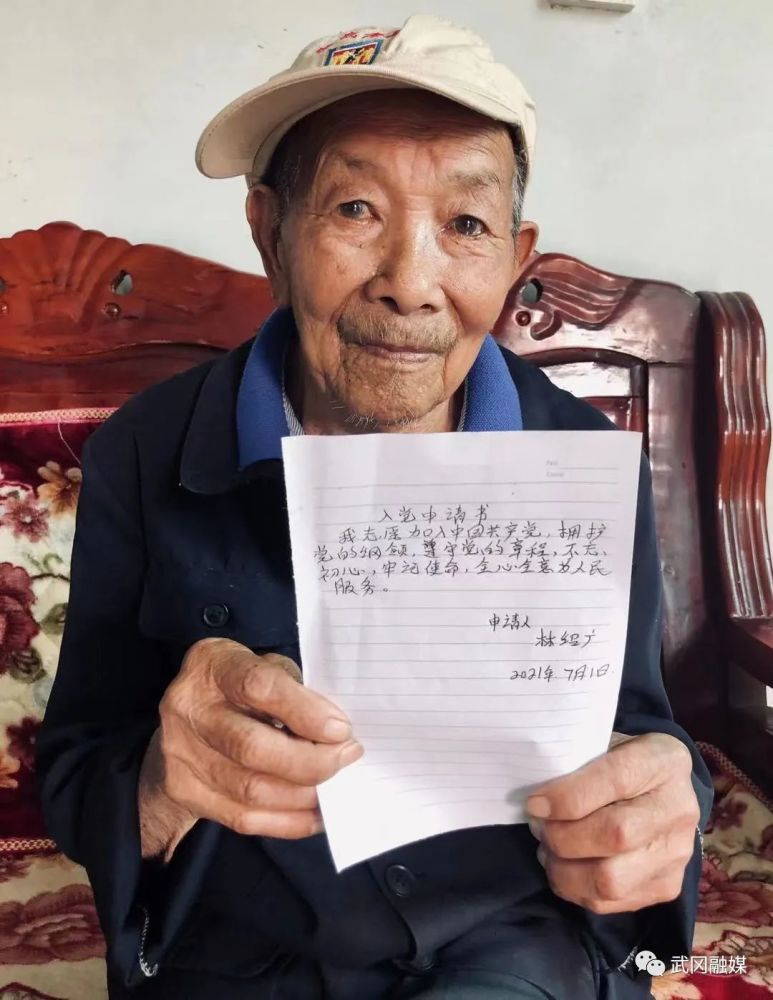 Date
入党申请书
我志愿加入中国共产党，拥护
党的纲领，遵守党的章程，不忘
初心，牢记使命，全心全意为人民
服务。
申请人
林绍广
2021年7月1日
武冈融媒